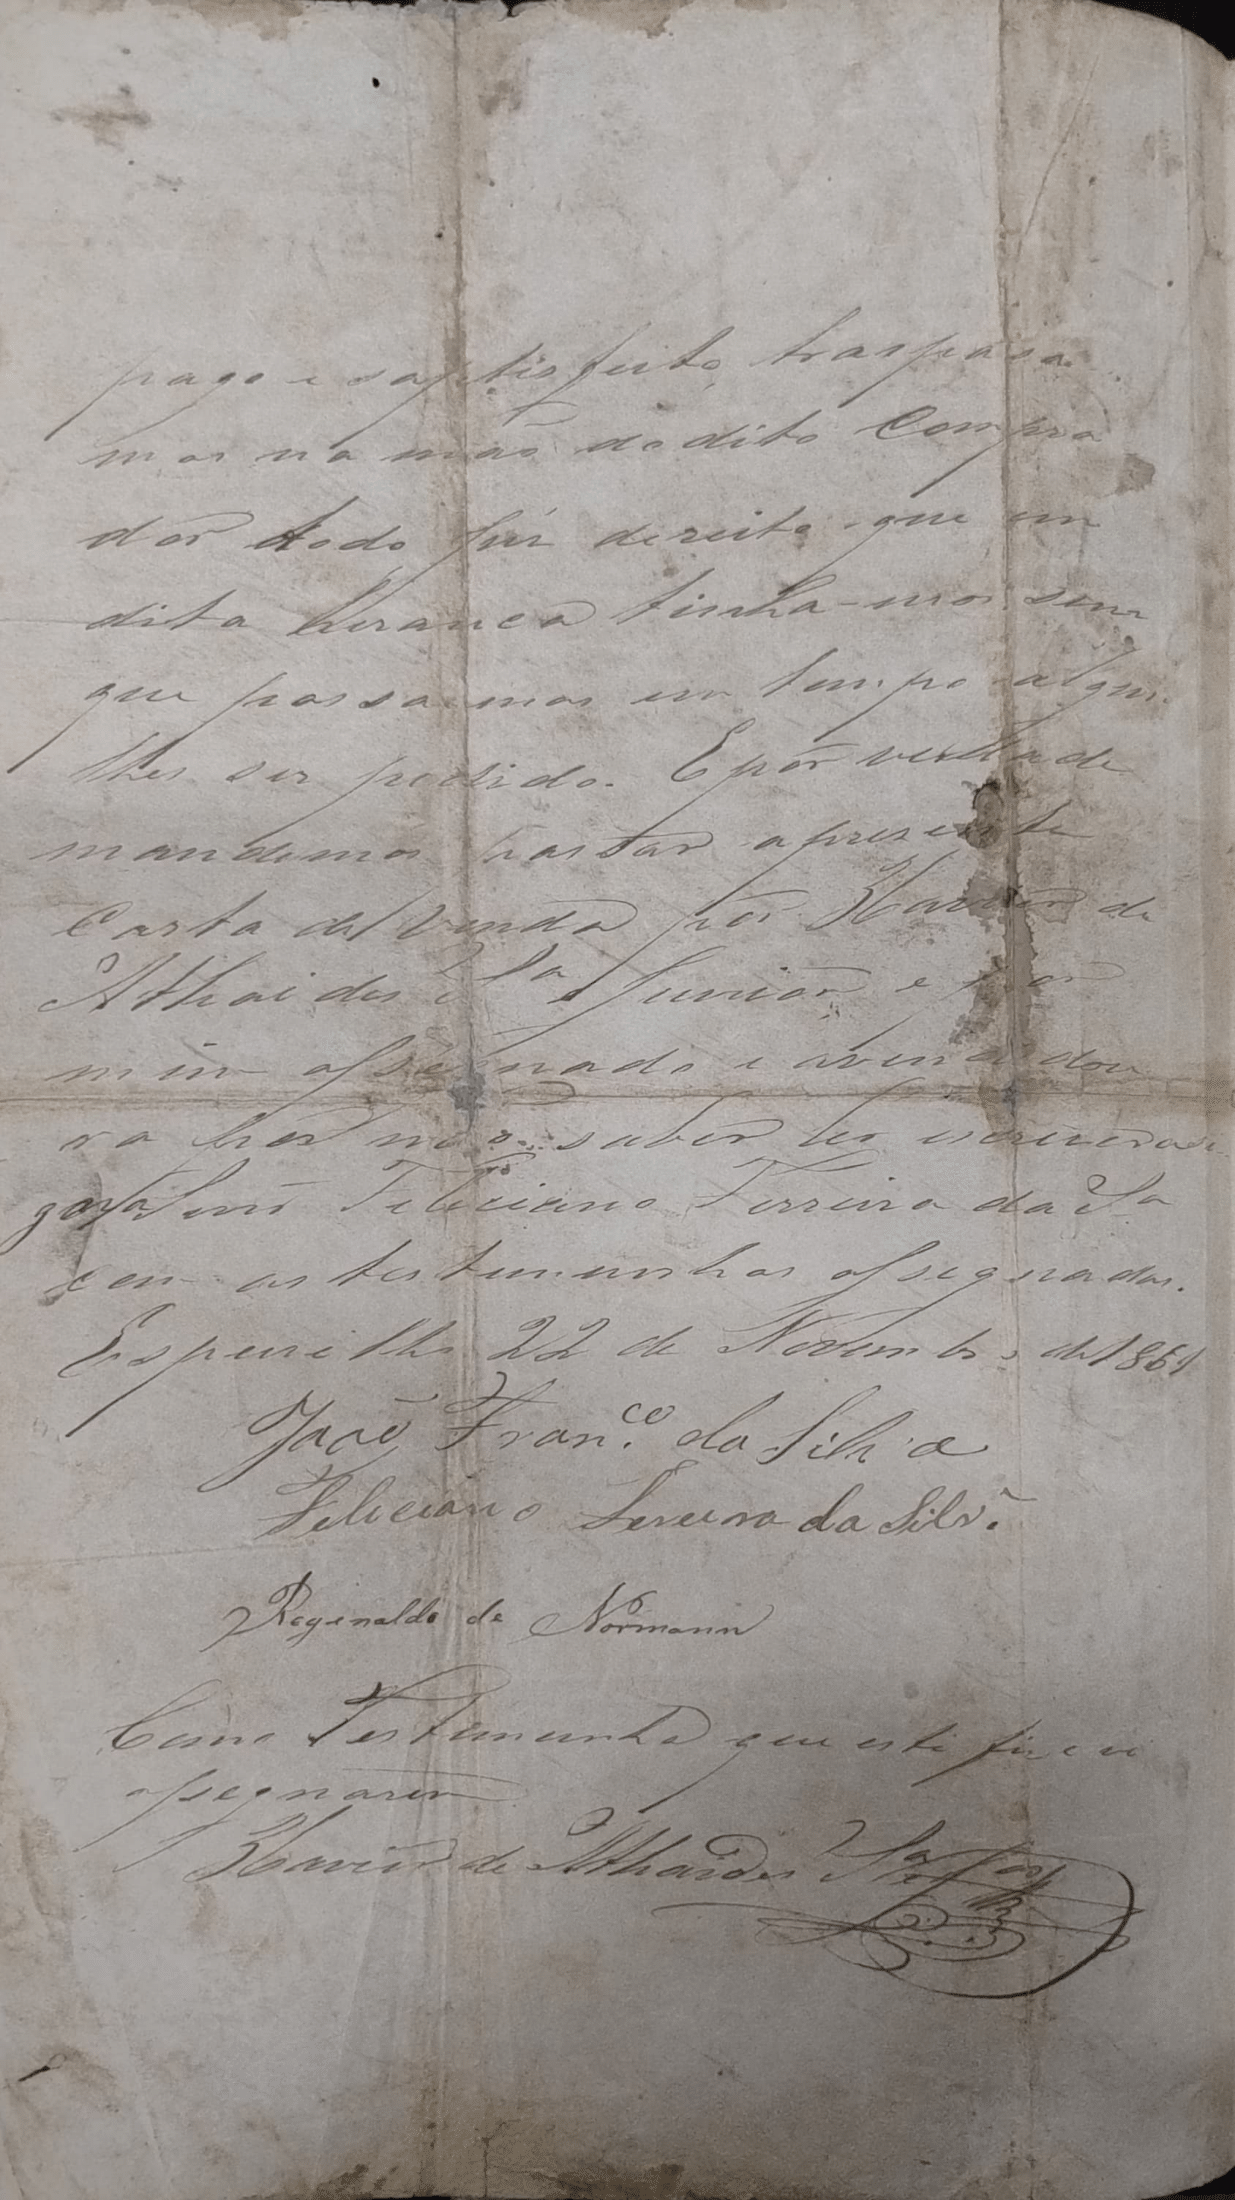 pago e saptisfeito, traspasa
mos na mão do dito Compra
dor todo jus dereito que em
dita herança tinha-mos sem
que possamos em tempo algum
lhes ser pedido. E por verdade
mandemos pasar apresente
Carta de Venda por Xavier de
Athaides Sa Junior e por
mim assegnado e avendedou
ra por não saber ler escrever asi
gou Feliciano Ferreira da Sa
com as testemunhas assegnadas.
22 de Novembro de 1861
João Fran.co da Silva
Feliciano Fereira da Silv.a
Reginaldo de Normann
Como Testemunha que este fiz e vi
assegnarem
Xavier de Athaides Sa Jor